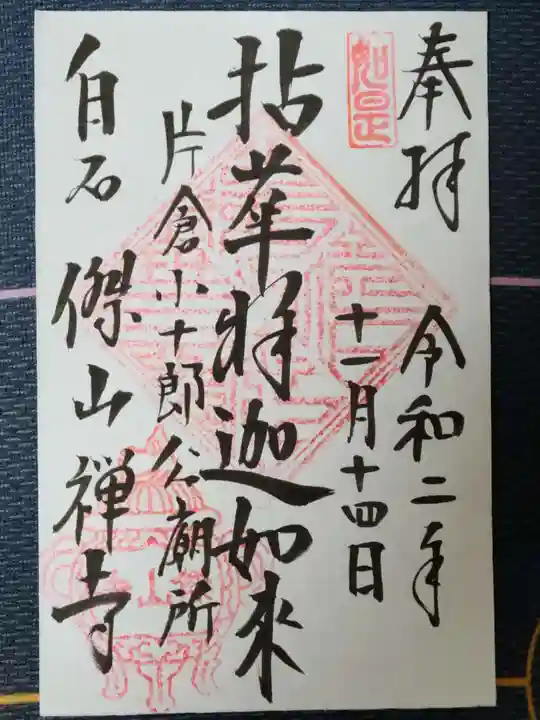 奉拝
令和二年
十一月十四日
如是
拈華釈迦如來
片倉小十郎公廟所
白石 傑山禅寺